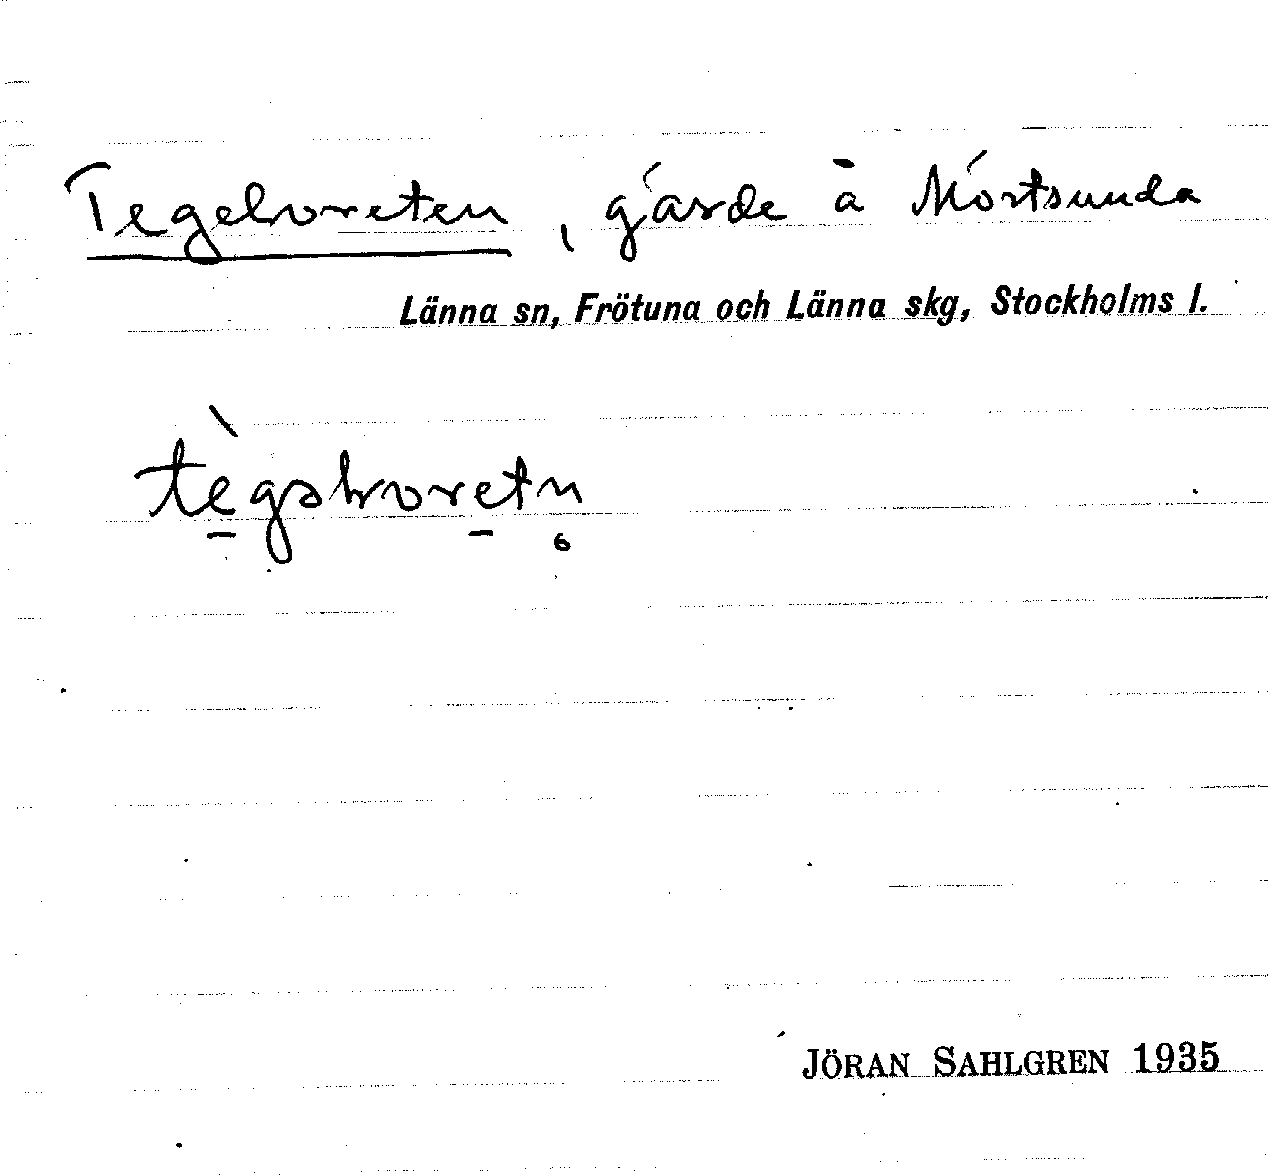 Tegelvreten, gärde å Mörtsunda
Länna sn, Frötuna och Länna skg, Stockholms l.
JÖRAN SAHLGREN 1935